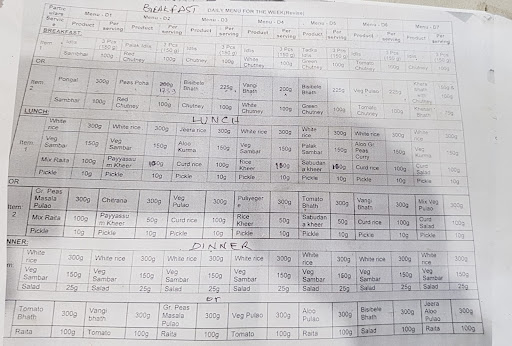 BREAKFAST DAILY MENU FOR THE WEEK(Revise)
Menu - D1 Menu - D2 Menu - D3 Menu - D4 Menu - D5 Menu - D6 Menu - D7
Product Per serving Product Per serving Product Per serving Product Per serving Product Per serving Product Per serving Product Per serving
BREAKFAST
Item 1 Idlis 3 Pcs Palak Idlis 3 Pcs Idlis 3 Pcs
Sambhar 100g Red Chutney 100g Chutney 100g White Chutney 100g Green Chutney 100g Tomato Chutney 100g Chutney 100g
OR
Item 2 Pongal 300g Peas Poha Bisibele Bhath 225g Vangi Bhath 200g Bisibele Bhath 225g Veg Pulao 225g
Sambar 100g Red Chutney 100g Chutney 100g White Chutney 100g Green Chutney 100g Tomato Chutney 100g
LUNCH: LUNCH
White rice 300g White rice 300g Jeera rice 300g White rice 300g White rice 300g White rice 300g White rice 300g
Veg Sambar 150g Veg Sambar 150g Aloo Kurma 150g Veg Sambar 150g Palak Sambar 150g Aloo Gr. Peas Curry 150g Veg Sambar 150g
Mix Raita 100g Payyassum Kheer Curd rice 100g Rice Kheer Sabudana kheer Curd rice 100g Curd Salad 100g
Pickle 10g Pickle 10g Pickle 10g Pickle 10g Pickle 10g Pickle 10g Pickle 10g
OR
Item 2 Gr. Peas Masala Pulao 300g Chitrana 300g Veg Pulao 300g Puliyogere 300g Tomato Bhath 300g Vangi Bhath 300g Mix Veg Pulao 300g
Mix Raita 100g Payyassum Kheer 50g Curd rice 100g Rice Kheer 50g Sabudana kheer 50g Curd rice 100g Curd Salad 100g
Pickle 10g Pickle 10g Pickle 10g Pickle 10g Pickle 10g Pickle 10g Pickle 10g
NNER: DINNER
White rice 300g White rice 300g White rice 300g White rice 300g White rice 300g White rice 300g White rice 300g
Veg Sambar 150g Veg Sambar 150g Veg Sambar 150g Veg Sambar 150g Veg Sambar 150g Veg Sambar 150g Veg Sambar 150g
Salad 25g Salad 25g Salad 25g Salad 25g Salad 25g Salad 25g Salad 25g
Tomato Bhath 300g Vangi bhath 300g Gr. Peas Masala Pulao 300g Veg Pulao 300g Aloo Pulao 300g Bisibele Bhath 300g Jeera Aloo Pulao 300g
Raita 100g Tomato 100g Raita 100g Tomato 100g Raita 100g Salad 100g Raita 100g